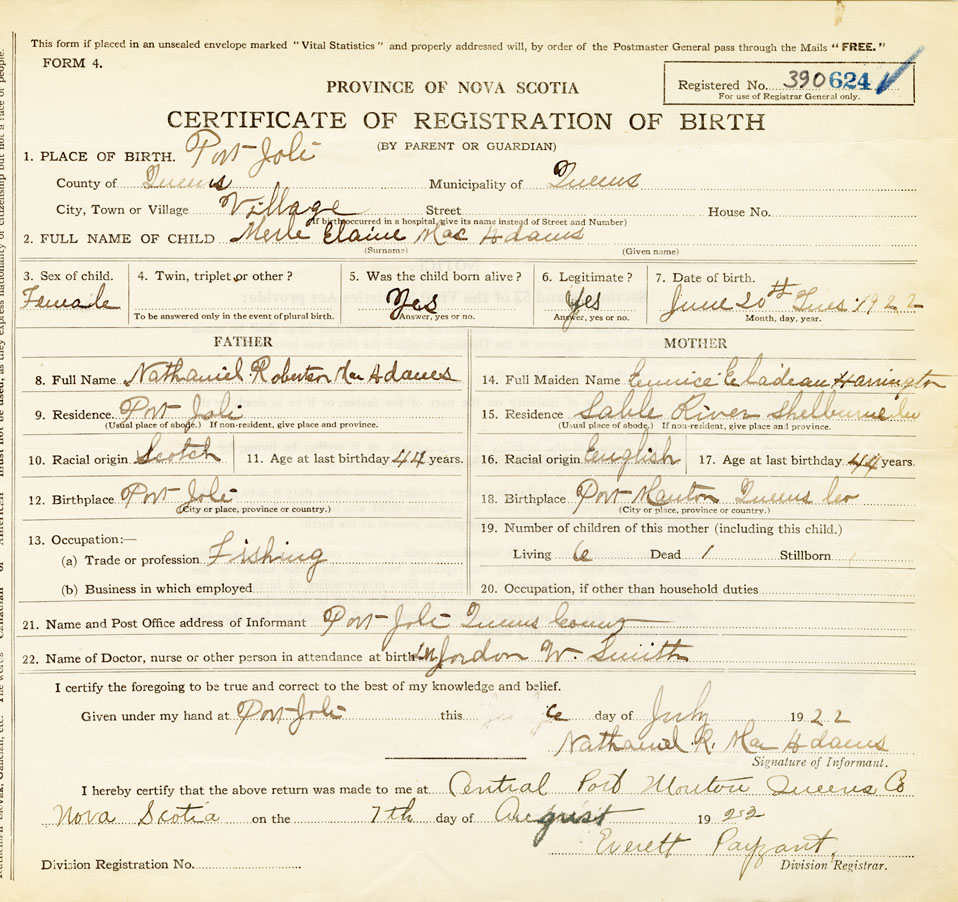 This form if placed in an unsealed envelope marked "Vital Statistics" and properly addressed will, by order of the Postmaster General pass through the Mails "FREE."
FORM 4.
Registered No. 390624
For use of Registrar General only.
PROVINCE OF NOVA SCOTIA
CERTIFICATE OF REGISTRATION OF BIRTH
(BY PARENT OR GUARDIAN)
1. PLACE OF BIRTH. Port Joli
County of Queens Municipality of Queens
City, Town or Village Village Street House No.
(If birth occurred in a hospital, give its name instead of Street and Number)
2. FULL NAME OF CHILD Merle Elaine Mac Adams
(Surname) (Given name)
3. Sex of child. 4. Twin, triplet or other? 5. Was the child born alive? 6. Legitimate? 7. Date of birth.
Female Yes Yes June 20th Tues 1922
To be answered only in the event of plural birth. Answer, yes or no. Answer, yes or no. Month, day, year.
FATHER MOTHER
8. Full Name Nathaniel Robertson Mac Adams 14. Full Maiden Name Eunice Harrington
9. Residence. Port Joli 15. Residence Sable River Shelburne Co
(Usual place of abode.) If non-resident, give place and province. (Usual place of abode.) If non-resident, give place and province.
10. Racial origin Scotch 11. Age at last birthday 44 years. 16. Racial origin English 17. Age at last birthday 44 years.
12. Birthplace Port Joli 18. Birthplace Port Manton Queens Co
(City or place, province or country.) (City or place, province or country.)
13. Occupation:— 19. Number of children of this mother (including this child.)
(a) Trade or profession Fishing Living 6 Dead 1 Stillborn
(b) Business in which employed 20. Occupation, if other than household duties
21. Name and Post Office address of Informant Port Joli Queens County
22. Name of Doctor, nurse or other person in attendance at birth Jordon W. Smith
I certify the foregoing to be true and correct to the best of my knowledge and belief.
Given under my hand at Port Joli this 6 day of July 1922
Nathaniel R. Mac Adams
Signature of Informant.
I hereby certify that the above return was made to me at Central Port Mouton Queens Co
Nova Scotia on the 7th day of August 1922
Everett Payzant
Division Registration No. Division Registrar.